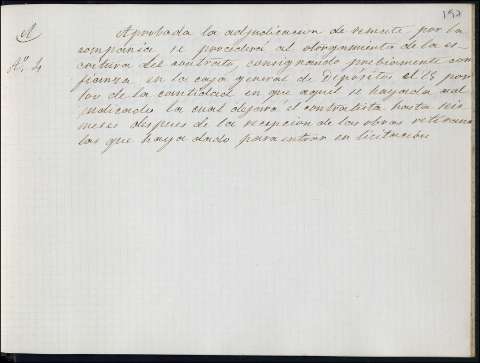 197
A
Aº. 4
Aprobada la adjudicacion de remate por la
compañia se procederá al otorgamiento de la es-
critura del contrato, consignando préviamente con
fianza en la caja general de Depósitos el 15 por
100 de la cantidad en que aquel se haya ad
judicado la cual dejará el contratista hasta seis
meses despues de la recepcion de las obras
las que haya dado para entrar en licitacion